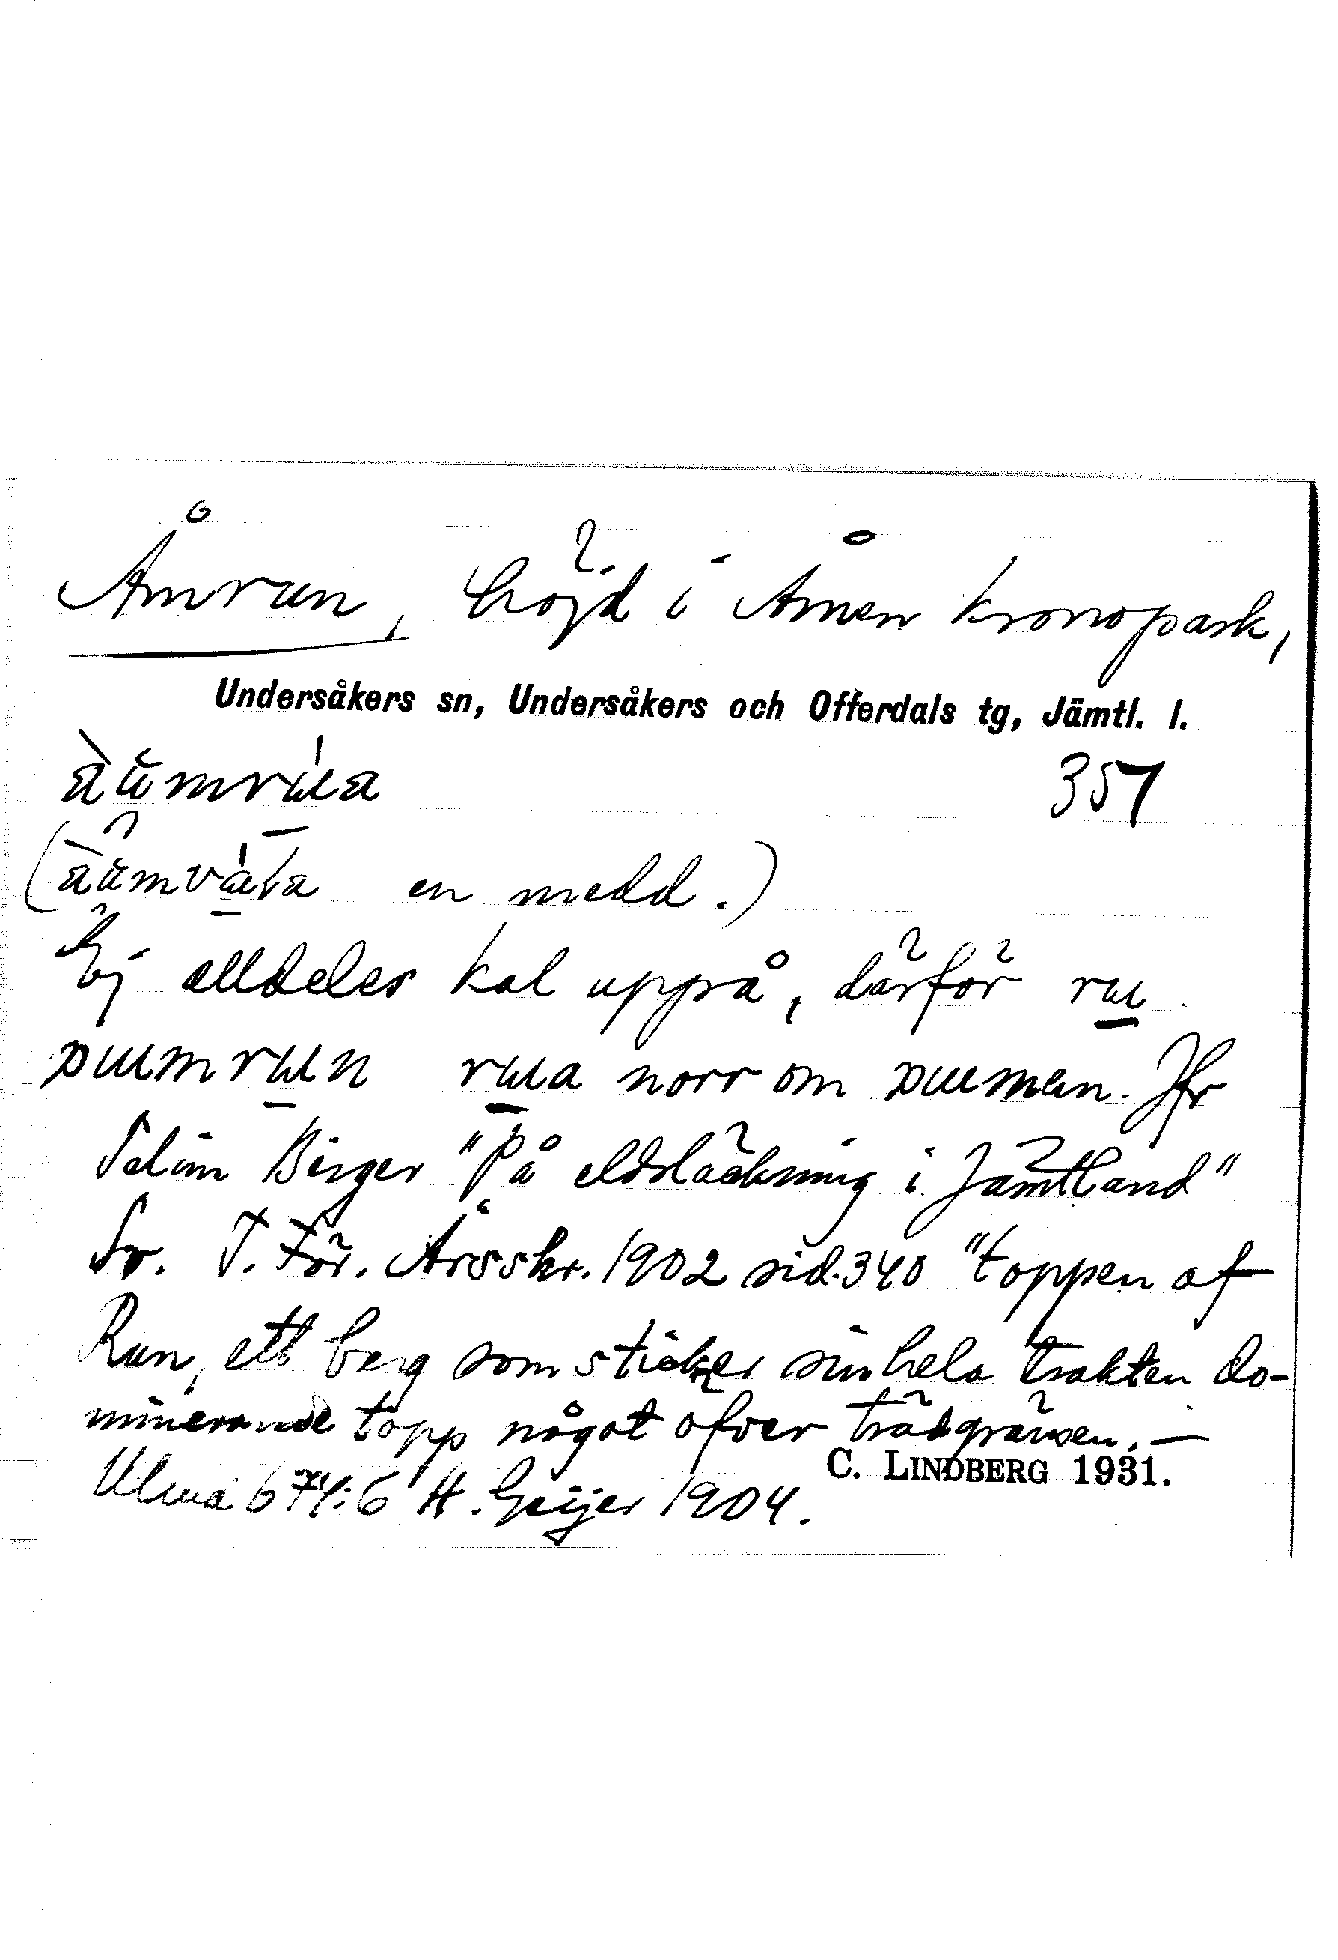 Åmrun, höjd i Åmen kronopark,
Undersåkers sn, Undersåkers och Offerdals tg, Jämtl. l.
357
en medd.)
Ej alldeles kal uppå, därför
norr om Jfr
Selim Birger "På eldsläckning i Jämtland"
Sv. T. För. Årsskr. 1902 sid. 340 "toppen af
Run, ett berg som sticker sin hela trakten do-
minerande topp något öfver trädgränsen. —
C. LINDBERG 1931.
Ulma 674:6 H. Geijer 1904.